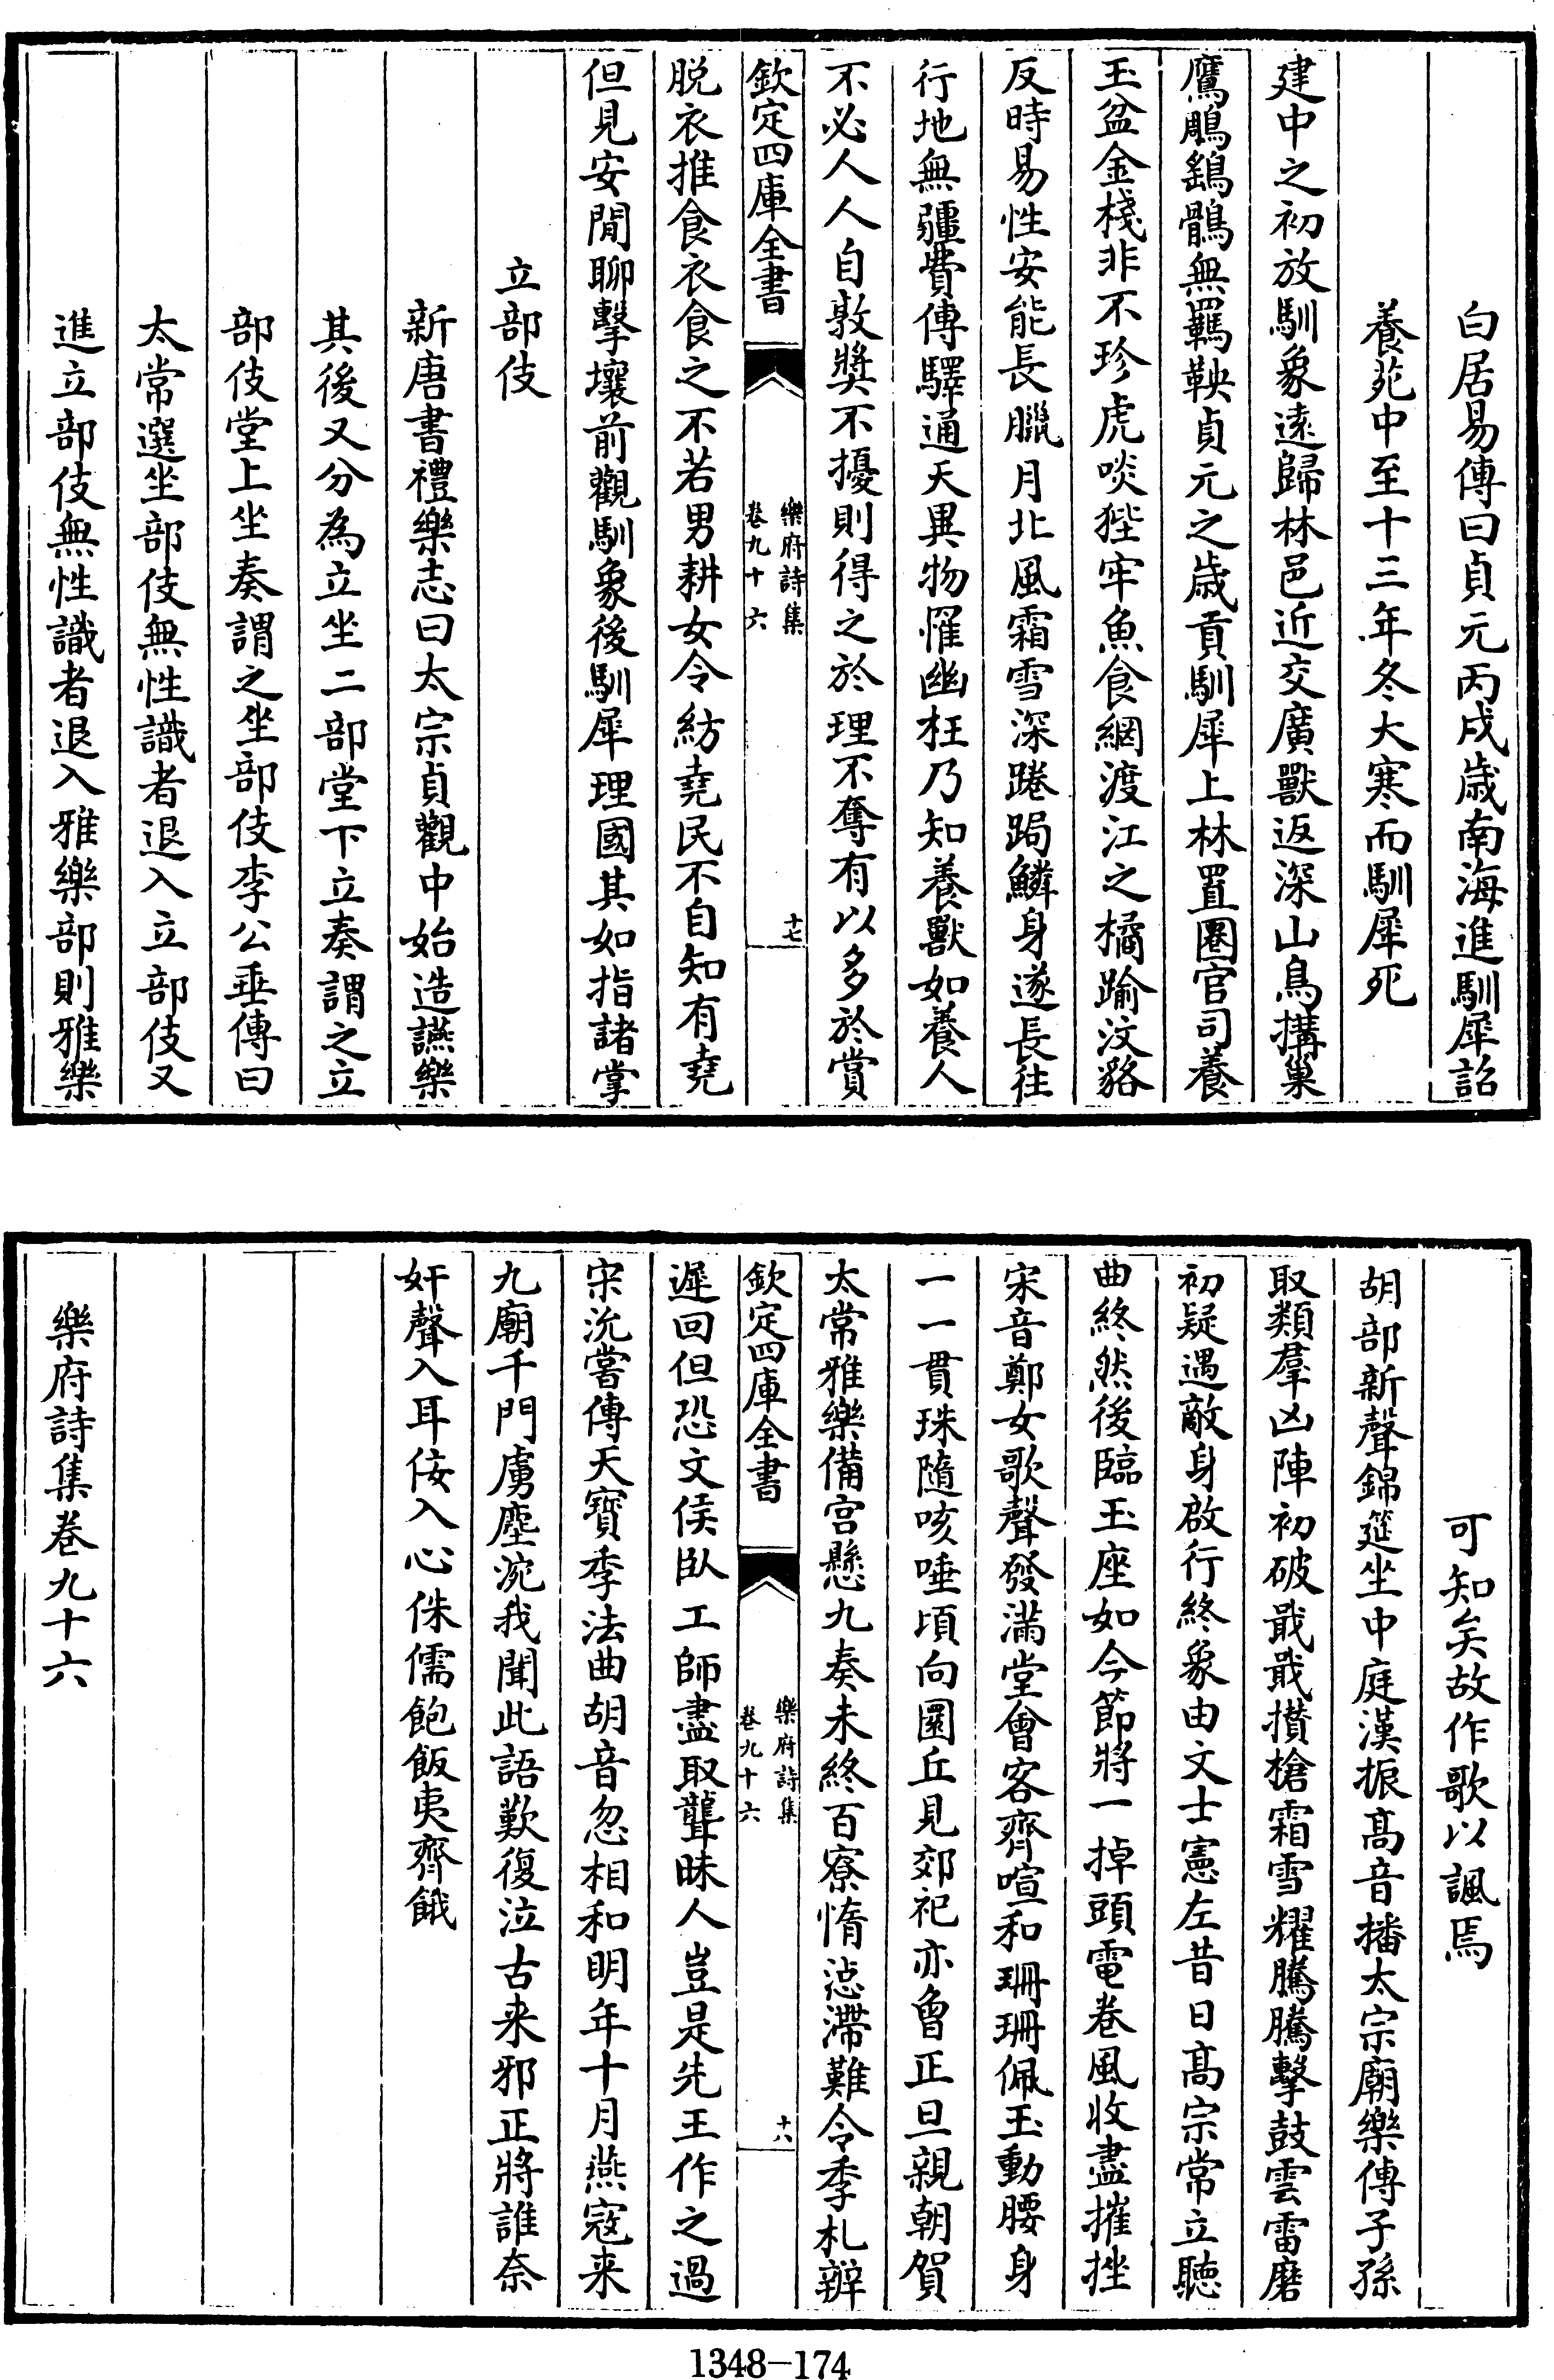 白居易傳曰貞元丙戌歲南海進馴犀詔
養苑中至十三年冬大寒而馴犀死
建中之初放馴象遠歸林邑近交廣獸返深山鳥搆巢
鷹鵰鷂鶻無羈鞅貞元之歲貢馴犀上林置圈官司養
玉盆金棧非不珍虎啖狴牢魚食網渡江之橘踰汶貉
反時易性安能長臘月北風霜雪深踡跼鱗身遂長往
行地無疆費傳驛通天異物罹幽枉乃知養獸如養人
不必人人自敦奬不擾則得之於理不奪有以多於賞
欽定四庫全書
樂府詩集
卷九十六
十七
脱衣推食衣食之不若男耕女令紡堯民不自知有堯
但見安閒聊擊壤前觀馴象後馴犀理國其如指諸掌
立部伎
新唐書禮樂志曰太宗貞觀中始造讌樂
其後又分為立坐二部堂下立奏謂之立
部伎堂上坐奏謂之坐部伎李公垂傳曰
太常選坐部伎無性識者退入立部伎又
進立部伎無性識者退入雅樂部則雅樂
可知矣故作歌以諷焉
胡部新聲錦筵坐中庭漢振高音播太宗廟樂傳子孫
取類羣凶陣初破戢戢攢槍霜雪耀騰騰擊鼓雲雷磨
初疑遇敵身啟行終象由文士憲左昔日高宗常立聽
曲終然後臨玉座如今節將一掉頭電卷風收盡摧挫
宋音鄭女歌聲發滿堂會客齊喧和珊珊佩玉動腰身
一一貫珠隨咳唾頃向圜丘見郊祀亦曾正旦親朝賀
太常雅樂備宫懸九奏未終百寮惰惉滯難令季札辨
欽定四庫全書
樂府詩集
卷九十六
十八
遲回但恐文侯臥工師盡取聾昧人豈是先王作之過
宋沇嘗傳天寶季法曲胡音忽相和明年十月燕寇来
九廟千門虜塵涴我聞此語歎復泣古来邪正將誰奈
奸聲入耳佞入心侏儒飽飯夷齊餓
樂府詩集卷九十六
1348-174